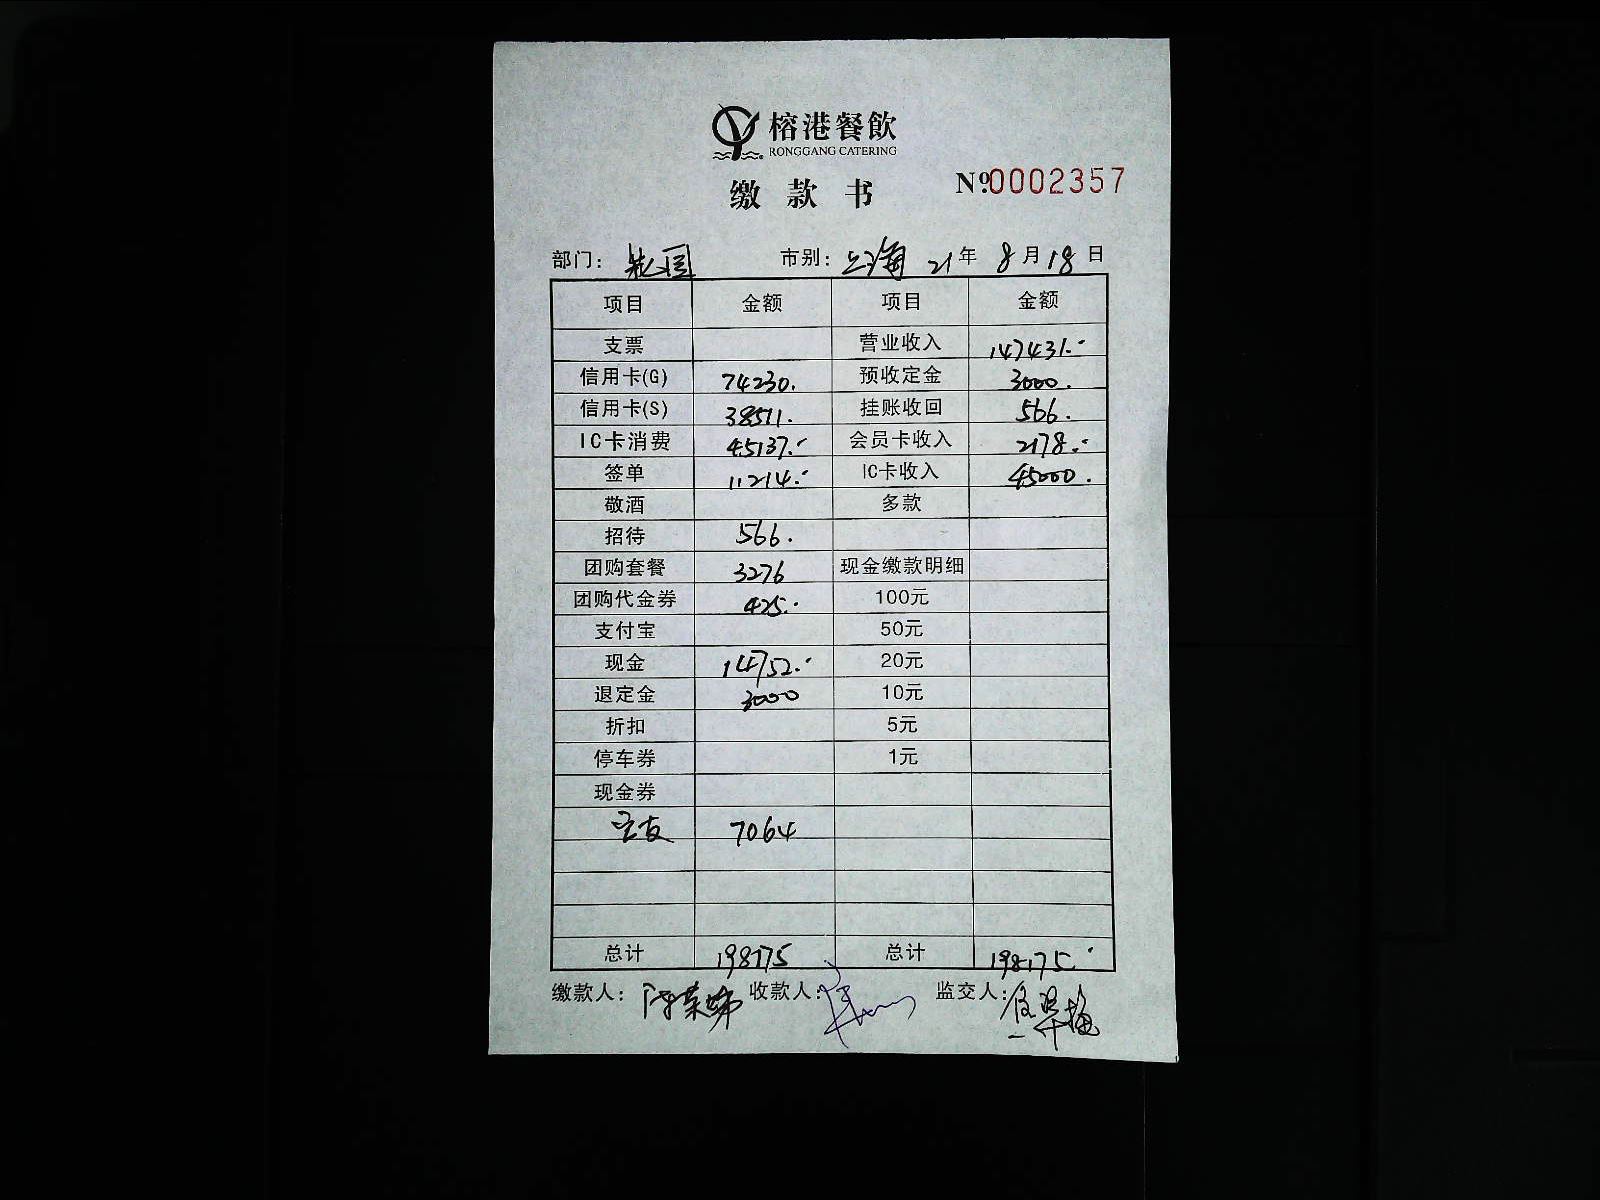 榕港餐飲
RONGGANG CATERING
缴款书 №0002357
部门: 市别: 上海 21年8月18日
项目 金额 项目 金额
支票 营业收入 147431.-
信用卡(G) 74230. 预收定金 3000.
信用卡(S) 38511. 挂账收回 566.
IC卡消费 45137.- 会员卡收入 2178.-
签单 11214.- IC卡收入 45000.
敬酒 多款
招待 566.
团购套餐 3276 现金缴款明细
团购代金券 425.- 100元
支付宝 50元
现金 14752.- 20元
退定金 3000 10元
折扣 5元
停车券 1元
现金券
7064
总计 198175 总计 198175.-
缴款人: 收款人: 监交人: